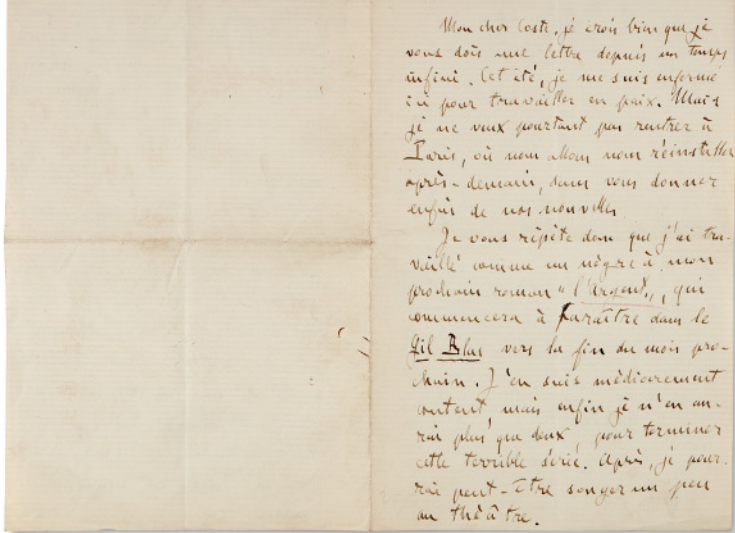 Mon cher Coste, je crois bien que je
vous dois une lettre depuis un temps
infini. Cet été, je me suis enfermé
ici pour travailler en paix. Mais
je ne veux pourtant pas rentrer à
Paris, où nous allons nous réinstaller
après-demain, sans vous donner
enfin de nos nouvelles.
Je vous répète donc que j'ai tra-
vaillé comme un nègre à mon
prochain roman "l'Argent", qui
commencera à paraître dans le
Gil Blas vers la fin du mois pro-
chain. J'en suis médiocrement
content mais enfin je n'en au-
rai plus que deux, pour terminer
cette terrible série. Après, je pour-
rai peut-être songer un peu
au théâtre.